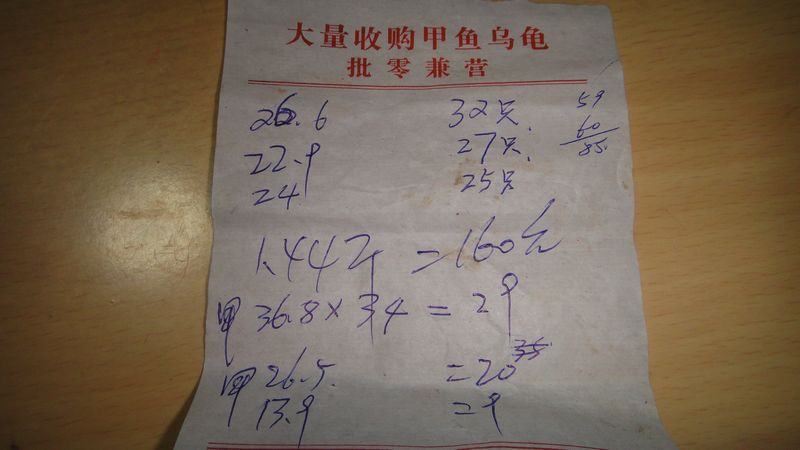 大量收购甲鱼乌龟
批零兼营
26.6 32只 59
22.9 27只 60
85
24 25只
1.442斤 =160元
甲 36.8×34 = 29
甲 26.5 =20
13.9 =9